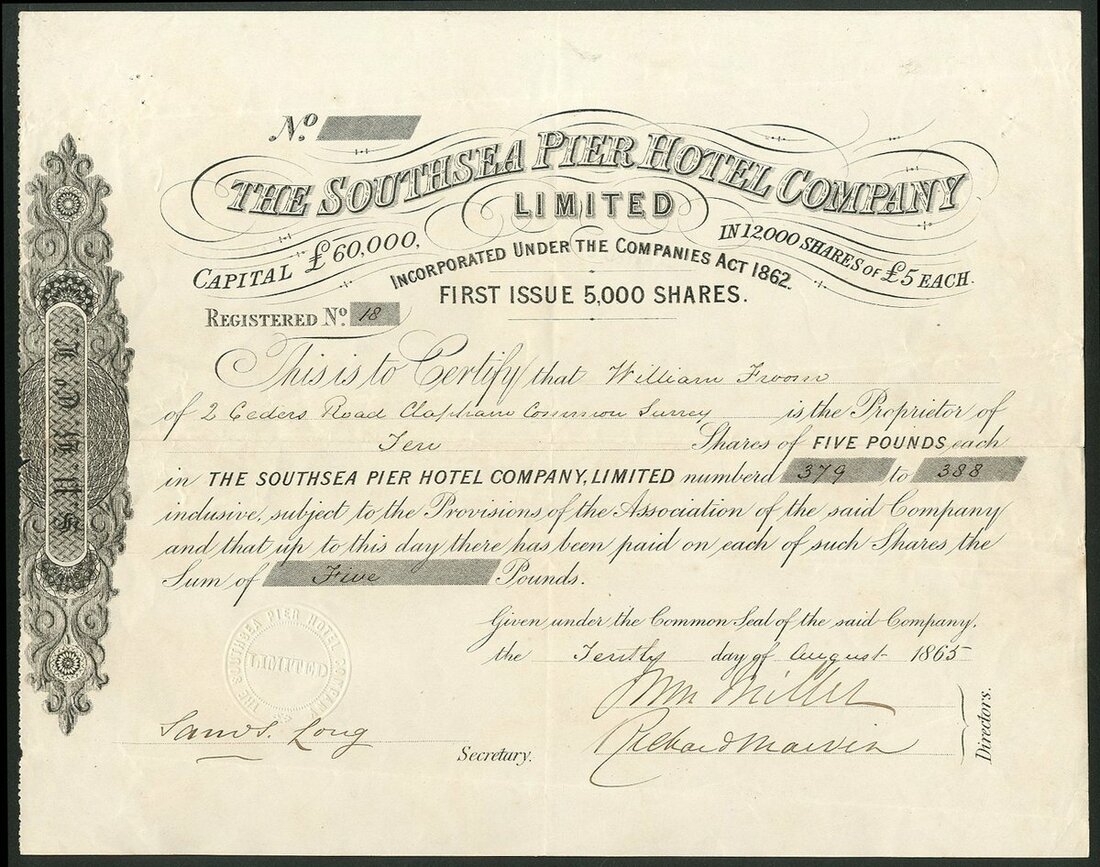 No.
THE SOUTHSEA PIER HOTEL COMPANY
LIMITED
CAPITAL £60,000,
IN 12,000 SHARES OF £5 EACH.
INCORPORATED UNDER THE COMPANIES ACT 1862.
FIRST ISSUE 5,000 SHARES.
REGISTERED No. 18
This is to Certify that William Froom
of 2 Ceders Road Clapham Common Surrey is the Proprietor of
Ten Shares of FIVE POUNDS each
in THE SOUTHSEA PIER HOTEL COMPANY, LIMITED numberd 379 to 388
inclusive, subject to the Provisions of the Association of the said Company
and that up to this day there has been paid on each of such Shares the
Sum of Five Pounds.
Given under the Common Seal of the said Company,
the Tenth day of August 1865
THE SOUTHSEA PIER HOTEL COMPANY
LIMITED
Wm Miller
Richard Marvin
Directors.
Saml. Long
Secretary.